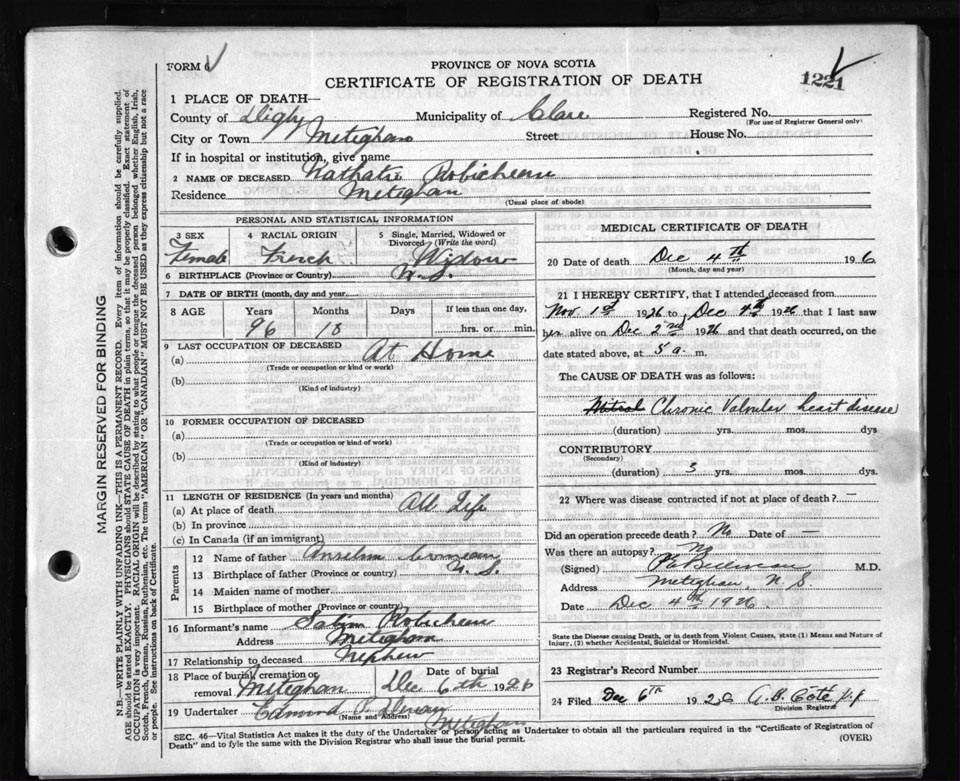 FORM 6
PROVINCE OF NOVA SCOTIA
CERTIFICATE OF REGISTRATION OF DEATH
1221
1 PLACE OF DEATH—
County of Digby Municipality of Clare Registered No.
(For use of Registrar General only)
City or Town Meteghan Street House No.
If in hospital or institution, give name
2 NAME OF DECEASED Nathalie Robicheau
Residence Meteghan
(Usual place of abode)
PERSONAL AND STATISTICAL INFORMATION
3 SEX 4 RACIAL ORIGIN 5 Single, Married, Widowed or Divorced (Write the word)
Female French Widow
6 BIRTHPLACE (Province or Country) N. S.
7 DATE OF BIRTH (month, day and year)
8 AGE Years Months Days If less than one day,
96 18 hrs. or min.
9 LAST OCCUPATION OF DECEASED
(a) At Home
(Trade or occupation or kind or work)
(b)
(Kind of industry)
10 FORMER OCCUPATION OF DECEASED
(a)
(Trade or occupation or kind of work)
(b)
(Kind of industry)
11 LENGTH OF RESIDENCE (In years and months)
(a) At place of death All Life
(b) In province
(c) In Canada (if an immigrant)
Parents
12 Name of father Anselm Comeau
13 Birthplace of father (Province or country) N. S.
14 Maiden name of mother
15 Birthplace of mother (Province or country)
16 Informant's name Robicheau
Address Meteghan
17 Relationship to deceased Nephew
18 Place of burial, cremation or removal Meteghan Date of burial Dec 6th 1926
19 Undertaker Edmund
(Name and Address) Meteghan
MEDICAL CERTIFICATE OF DEATH
20 Date of death Dec 4th 1926
(Month, day and year)
21 I HEREBY CERTIFY, that I attended deceased from
Nov 1st 1926 to Dec 4th 1926 that I last saw
her alive on Dec 2nd 1926 and that death occurred, on the
date stated above, at 5 a. m.
The CAUSE OF DEATH was as follows:
Mitral Chronic Valvular heart disease
(duration) yrs. mos. dys
CONTRIBUTORY
(Secondary)
(duration) 3 yrs. mos. dys.
22 Where was disease contracted if not at place of death? —
Did an operation precede death? No Date of —
Was there an autopsy? No
(Signed) M.D.
Address Meteghan, N. S.
Date Dec 4th 1926.
State the Disease causing Death, or in death from Violent Causes, state (1) Means and Nature of
Injury, (2) whether Accidental, Suicidal or Homicidal.
23 Registrar's Record Number
24 Filed Dec 6th 1926 A. B. Coté
Division Registrar
SEC. 46—Vital Statistics Act makes it the duty of the Undertaker or person acting as Undertaker to obtain all the particulars required in the "Certificate of Registration of
Death" and to fyle the same with the Division Registrar who shall issue the burial permit. (OVER)
MARGIN RESERVED FOR BINDING
N.B.—WRITE PLAINLY WITH UNFADING INK—THIS IS A PERMANENT RECORD. Every item of information should be carefully supplied.
AGE should be stated EXACTLY. PHYSICIANS should STATE CAUSE OF DEATH in plain terms, so that it may be properly classified. Exact statement of
OCCUPATION is very important. RACIAL ORIGIN will be described by stating to what people or tongue the deceased person belonged whether English, Irish,
Scotch, French, German, Russian, Ruthenian, etc. The terms "AMERICAN" OR "CANADIAN" MUST NOT BE USED as they express citizenship but not a race
or people. See instructions on back of Certificate.